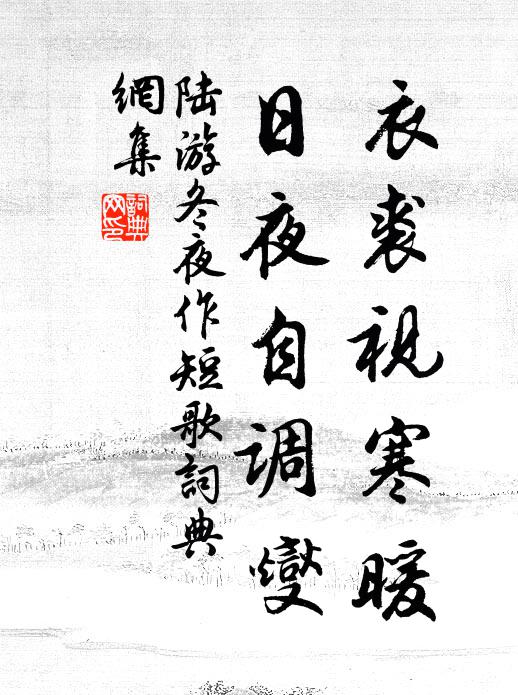 衣裘視寒暖
日夜自調燮
陸游冬夜作短歌詞典
網集
詞典
网印